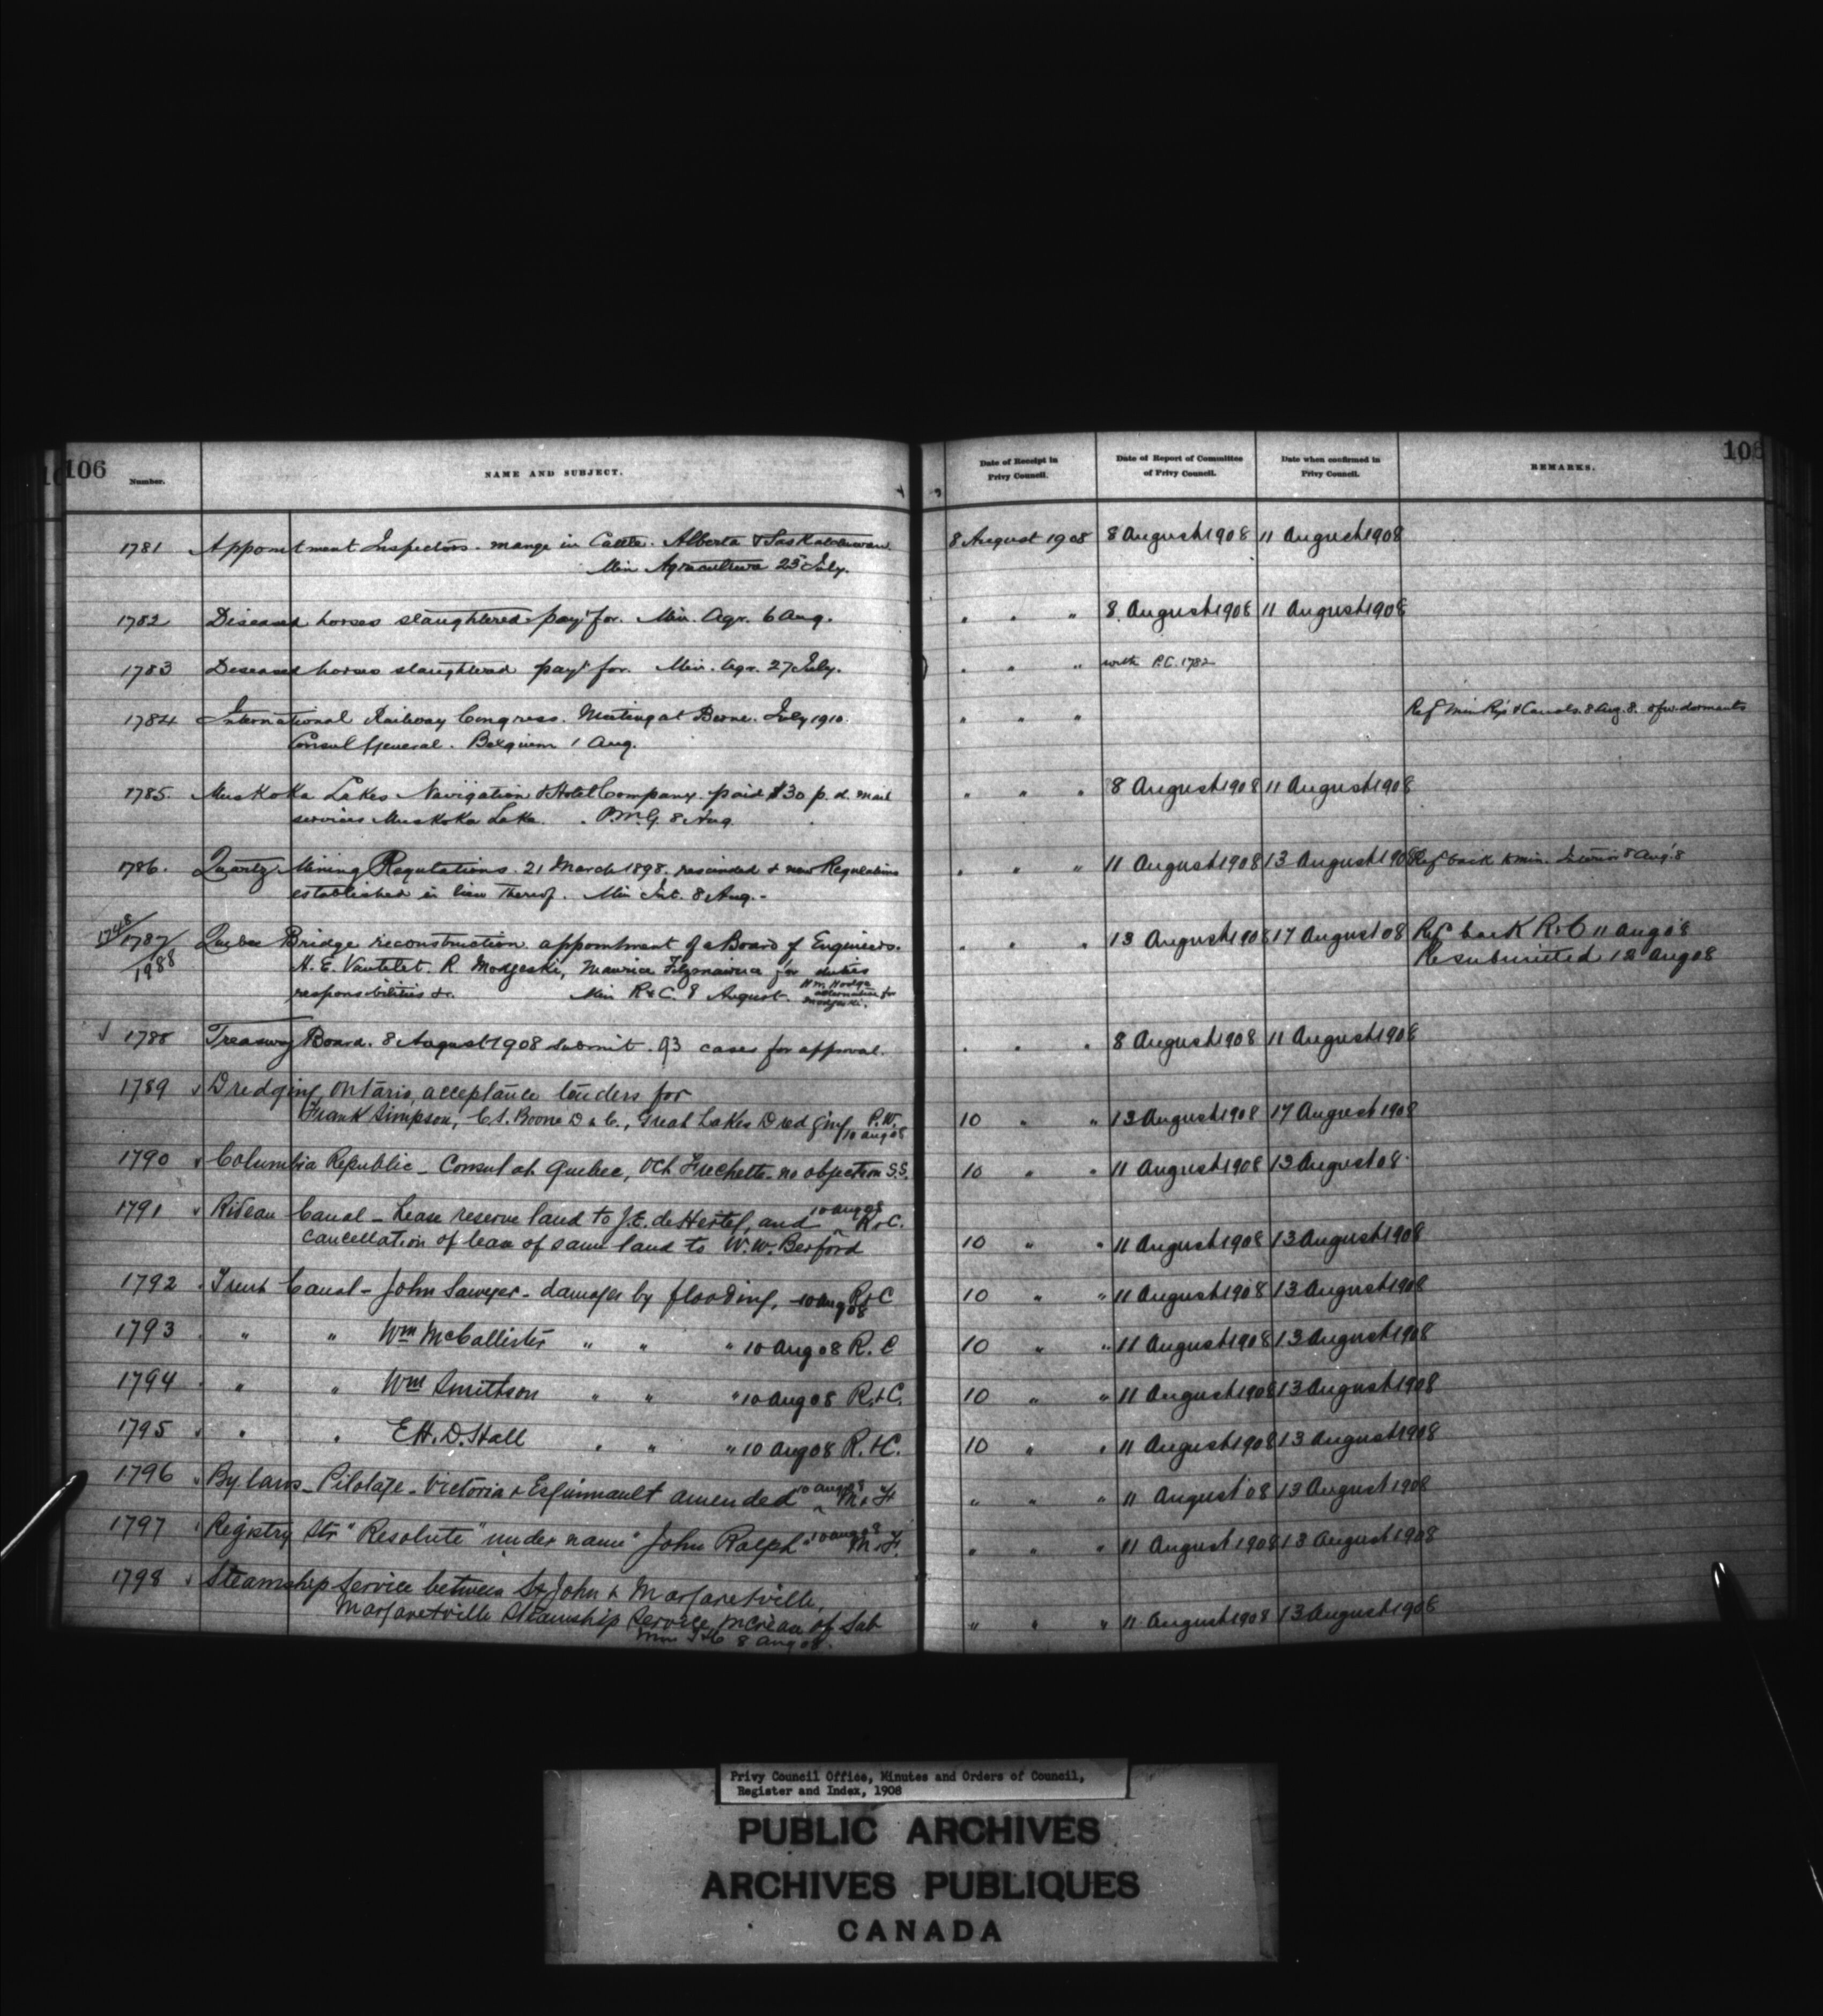 106
Number.
NAME AND SUBJECT.
Date of Receipt in Privy Council.
Date of Report of Committee of Privy Council.
Date when confirmed in Privy Council.
REMARKS.
106
1781 Appointment Inspectors. mange in Cattle. Alberta & Saskatchewan 8 August 1908 8 August 1908 11 August 1908
Min Agriculture 25 July.
1782 Diseased horses slaughtered payt for. Min. Agr. 6 Aug. " " " 8 August 1908 11 August 1908
1783 Diseased horses slaughtered payt for. Min. Agr. 27 July. " " " with P.C. 1782
1784 International Railway Congress. Meeting at Berne. July 1910. " " " Ref Min Rys & Canals. 8 Aug. 8.
Consul General. Belgium 1 Aug.
1785. Muskoka Lakes Navigation & Hotel Company. paid $30 p. d. mail " " " 8 August 1908 11 August 1908
services Muskoka Lake. P.M.G. 8 Aug.
1786. Quartz Mining Regulations. 21 March 1898. rescinded & new Regulations " " " 11 August 1908 13 August 1908 Ref back to min. Interior 8 Aug. '8
established in lieu thereof. Min Int. 8 Aug.-
1748/1787/1988 Quebec Bridge reconstruction appointment of a Board of Engineers. " " " 13 August 1908 17 August 08 Ref back R&C 11 Aug 08
H. E. Vautelet. R. Modjeski, Maurice Fitzmaurice for duties Resubmitted 12 Aug 08
responsibilities &c. Min R&C. 8 August. H m. Hodge alternative for Modjeski.
1788 Treasury Board. 8 August 1908 submit. 93 cases for approval. " " " 8 August 1908 11 August 1908
1789 Dredging, Ontario, acceptance tenders for
Frank Simpson, C.S. Boone D & C., Great Lakes Dredging P.W. 10 Aug 08 10 " " 13 August 1908 17 August 1908
1790 Columbia Republic - Consul at Quebec, Oct Frechette - no objection S.S. 10 " " 11 August 1908 13 August 08
1791 Rideau Canal - Lease reserve land to J.E. de Hertel, and 10 Aug 08 R&C.
cancellation of lease of same land to W.W. Berford 10 " " 11 August 1908 13 August 1908
1792 Trent Canal - John Sawyer - damages by flooding, 10 Aug 08 R&C 10 " " 11 August 1908 13 August 1908
1793 " " Wm McCallister " " " 10 Aug 08 R. C 10 " " 11 August 1908 13 August 1908
1794 " " Wm Smithson " " " 10 Aug 08 R.&C. 10 " " 11 August 1908 13 August 1908
1795 " " E.H.D. Hall " " " 10 Aug 08 R.&C. 10 " " 11 August 1908 13 August 1908
1796 By laws - Pilotage - Victoria & Esquimault amended 10 Aug 08 M & F " " " 11 August 08 13 August 1908
1797 Registry Str "Resolute" under name "John Ralph" 10 Aug 08 M. F. " " " 11 August 1908 13 August 1908
1798 Steamship Service between St John & Margaretville,
Margaretville Steamship Service, increase of Sub " " " 11 August 1908 13 August 1908
Min T&C 8 Aug 08.
Privy Council Office, Minutes and Orders of Council,
Register and Index, 1908
PUBLIC ARCHIVES
ARCHIVES PUBLIQUES
CANADA